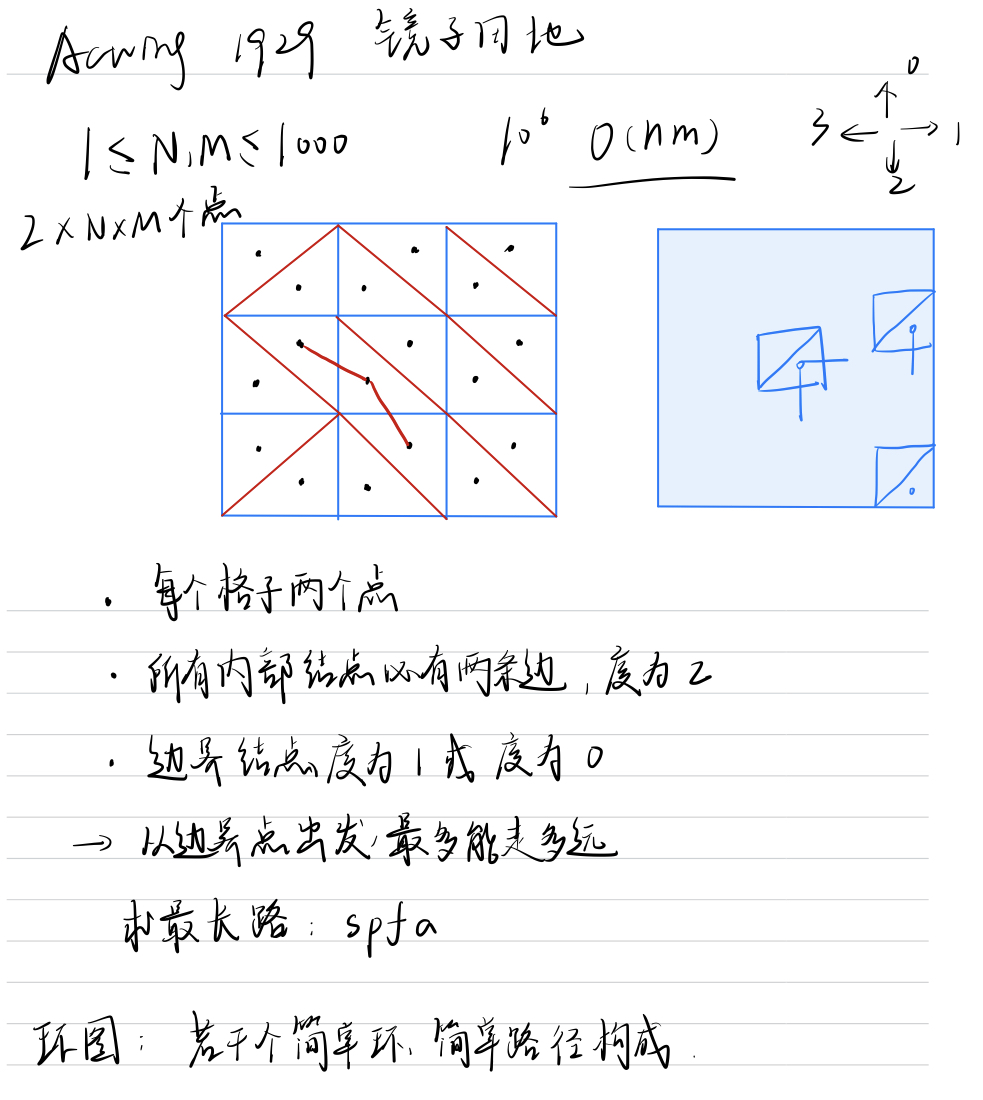 Acwing 1929 镜子田地
1≤N,M≤1000 10^6 O(nm)
0
3 1
2
2×N×M个点
· 每个格子两个点
· 所有内部结点必有两条边,度为2
· 边界结点度为1或度为0
→ 从边界点出发,最多能走多远
求最长路:spfa
环图:若干个简单环、简单路径构成.